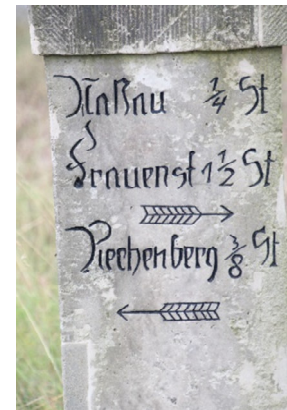 Naßau ¼ St
Frauenst 1½ St
Riechenberg ⅜ St